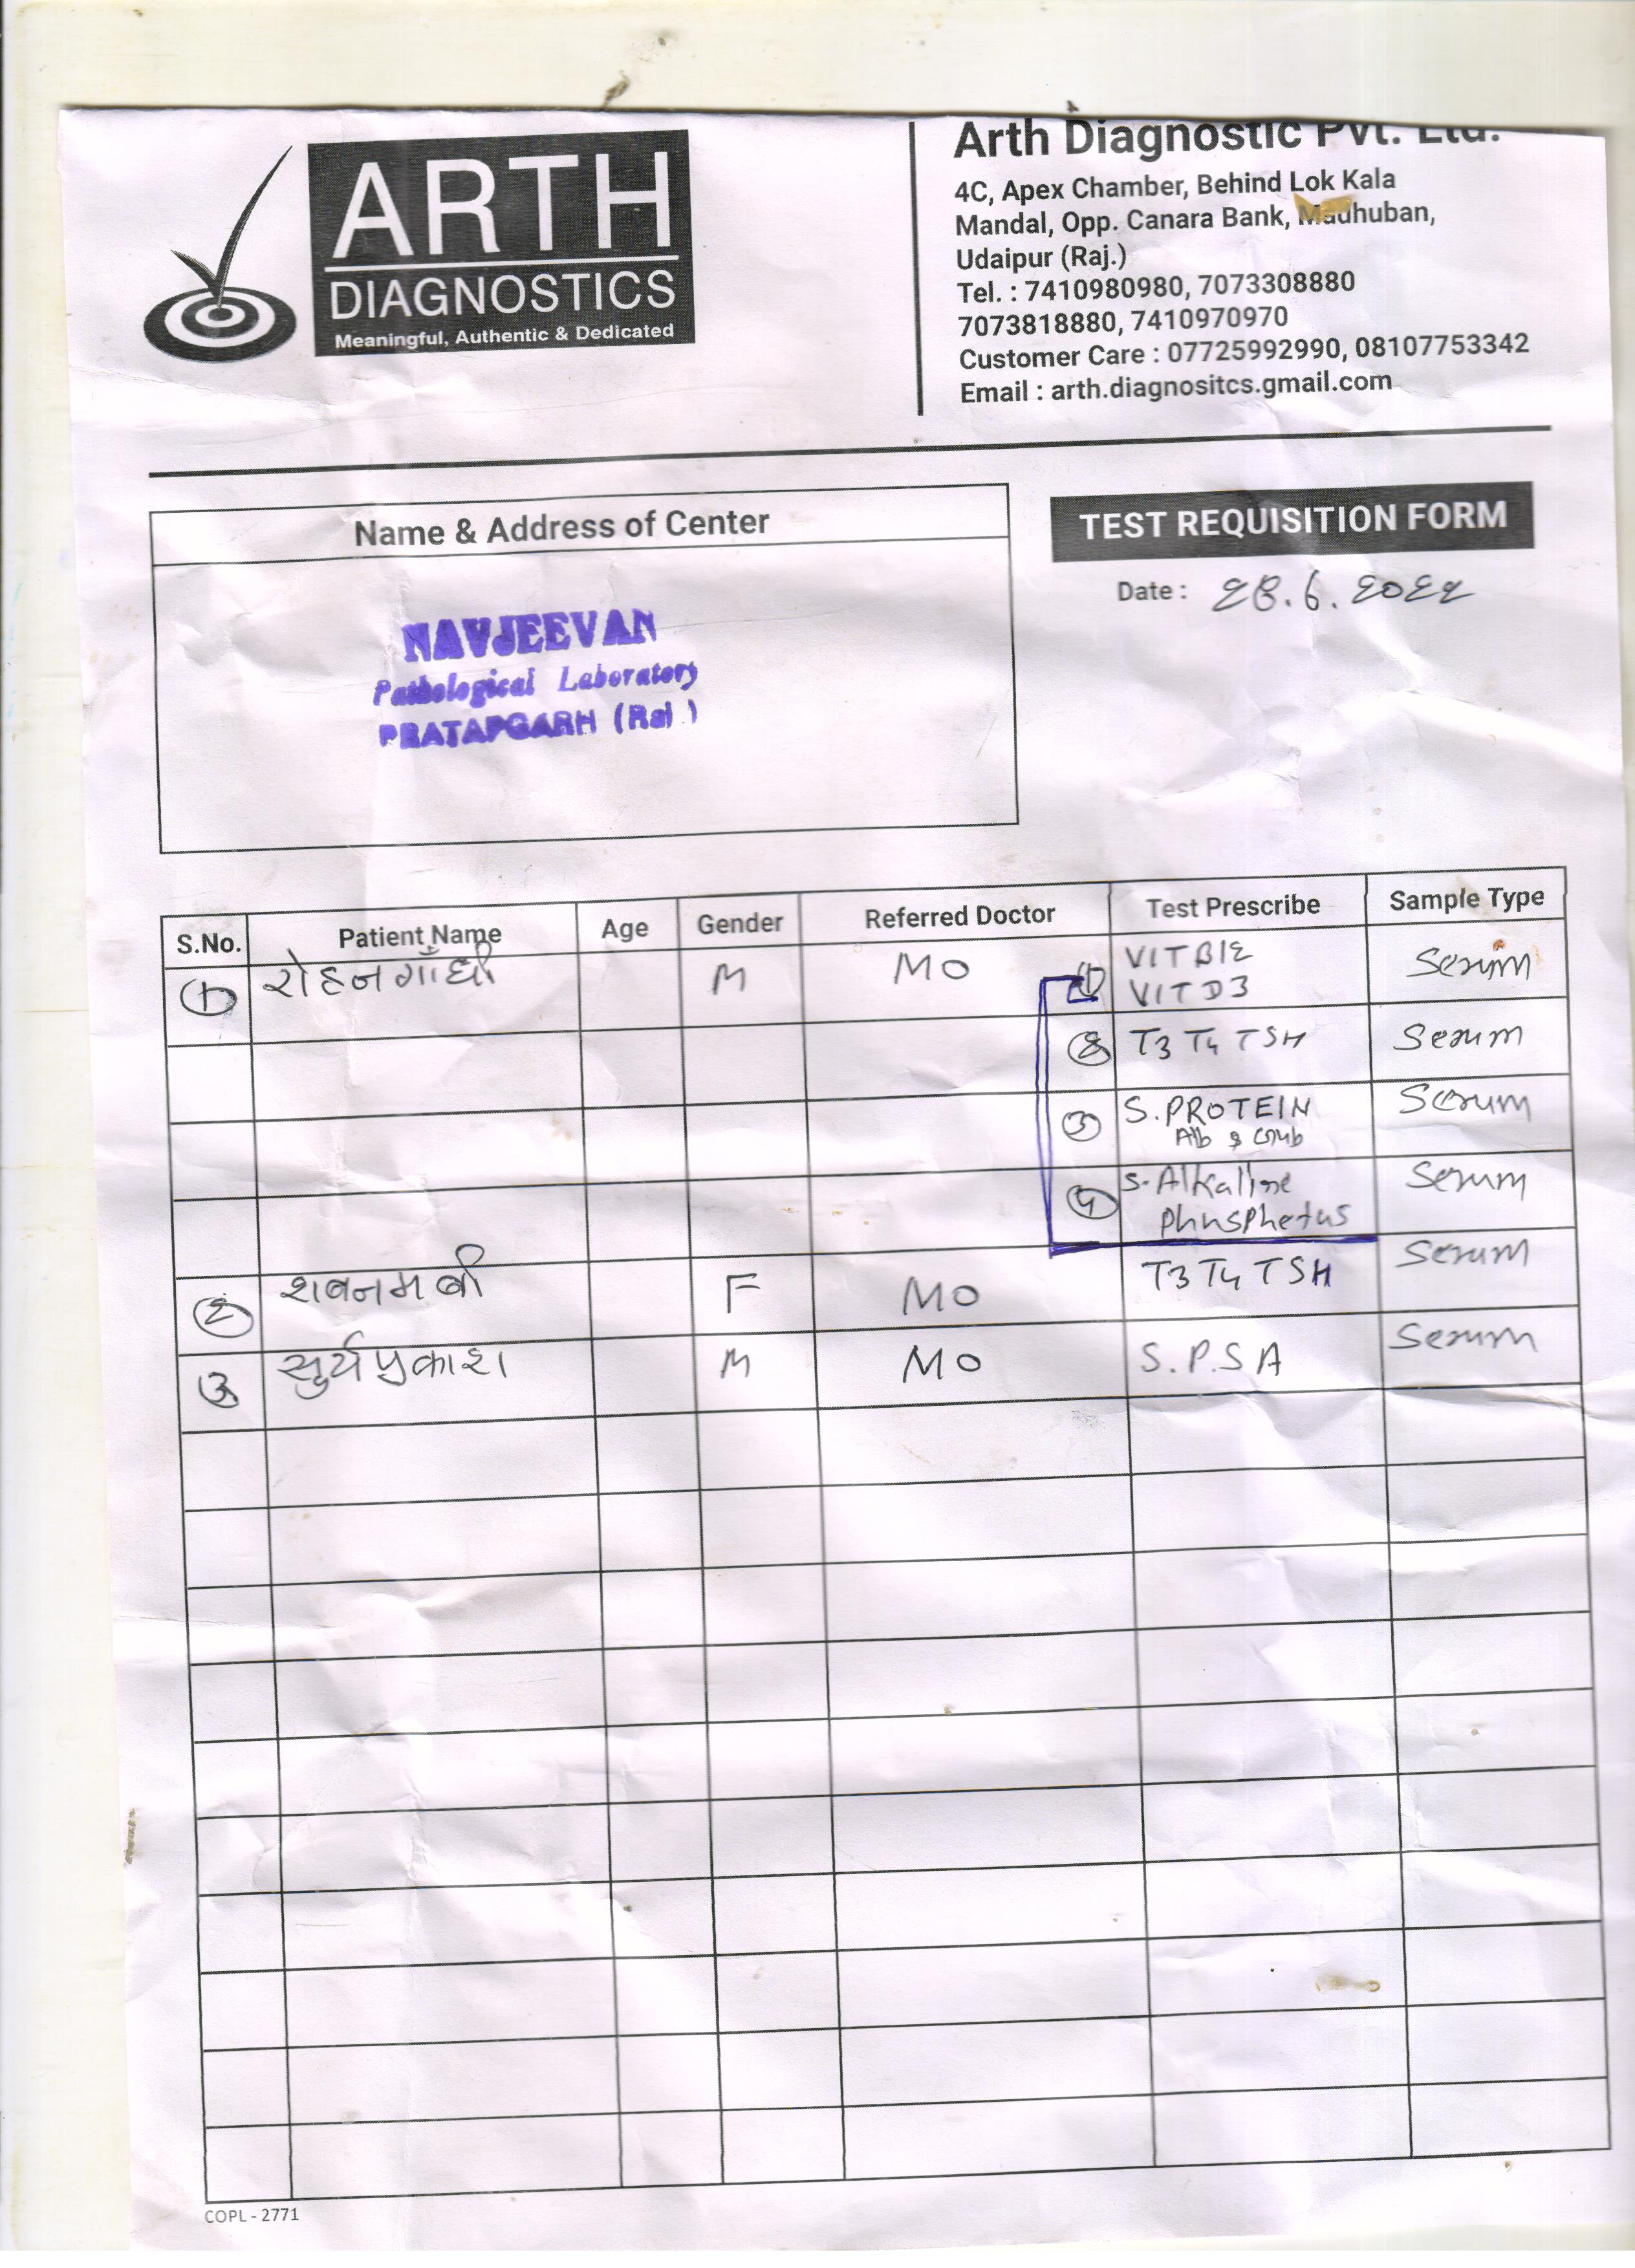 ARTH
DIAGNOSTICS
Meaningful, Authentic & Dedicated
Arth Diagnostic Pvt. Ltd.
4C, Apex Chamber, Behind Lok Kala
Mandal, Opp. Canara Bank, Madhuban,
Udaipur (Raj.)
Tel. : 7410980980, 7073308880
7073818880, 7410970970
Customer Care : 07725992990, 08107753342
Email : arth.diagnositcs.gmail.com
Name & Address of Center
TEST REQUISITION FORM
Date : 28.6.2022
NAVJEEVAN
Pathological Laboratory
PRATAPGARH (Raj.)
S.No. Patient Name Age Gender Referred Doctor Test Prescribe Sample Type
1 रोहन गाँधी M MO 1 VIT B12 Serum
VIT D3
2 T3 T4 TSH Serum
3 S. PROTEIN Serum
Alb &
4 S. Alkaline Serum
Phusphetus
2 शबनम बी F MO T3 T4 TSH Serum
3 सुर्य प्रकाश M MO S.P.S A Serum
COPL - 2771